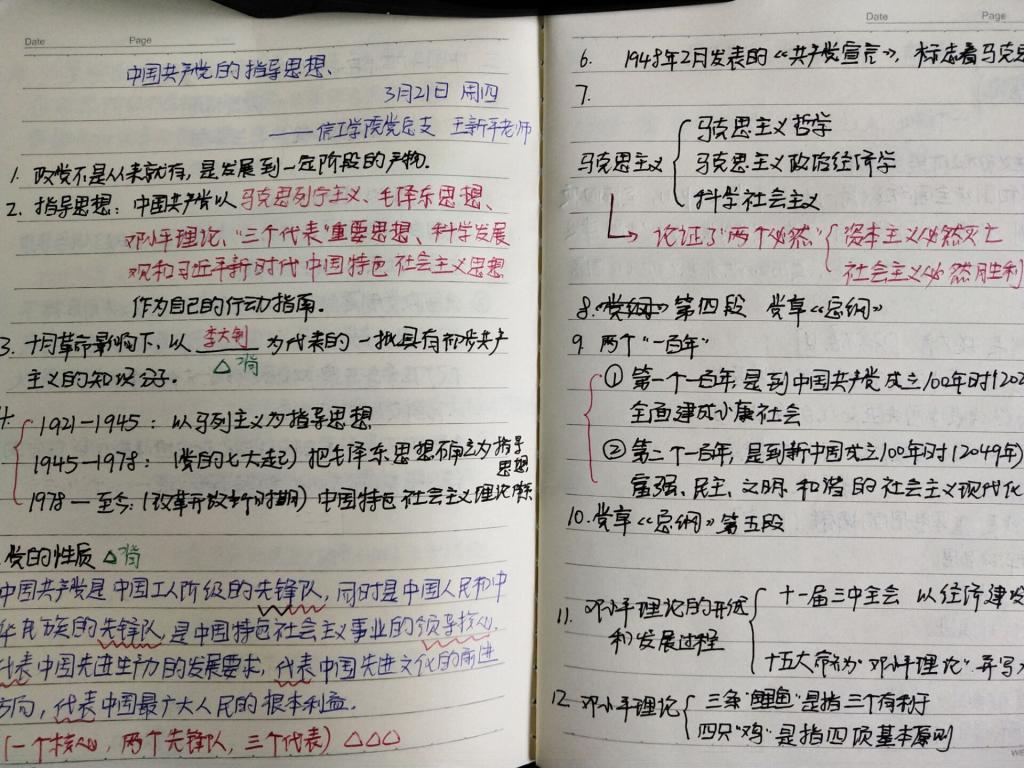 Date Page
中国共产党的指导思想、
3月21日 周四
——信工学院党总支 王新平老师
1. 政党不是从来就有,是发展到一定阶段的产物.
2. 指导思想:中国共产党以马克思列宁主义、毛泽东思想、
邓小平理论、"三个代表"重要思想、科学发展
观和习近平新时代中国特色社会主义思想
作为自己的行动指南.
3. 十月革命影响下,以 李大钊 为代表的一批具有初步共产
△背
主义的知识分子.
4. 1921—1945:以马列主义为指导思想
1945—1978:(党的七大起)把毛泽东思想确立为指导
思想
1978—至今:(改革开放新时期)中国特色社会主义理论体系
党的性质 △背
中国共产党是中国工人阶级的先锋队,同时是中国人民和中
华民族的先锋队,是中国特色社会主义事业的领导核心.
代表中国先进生产力的发展要求,代表中国先进文化的前进
方向,代表中国最广大人民的根本利益.
(一个核心,两个先锋队,三个代表)△△△
Date Page
6. 1948年2月发表的《共产党宣言》,标志着马克思
7.
马克思主义哲学
马克思主义 马克思主义政治经济学
科学社会主义
论证了"两个必然" 资本主义必然灭亡
社会主义必然胜利
8.《党纲》第四段 党章《总纲》
9. 两个"一百年"
① 第一个一百年,是到中国共产党成立100年时(202
全面建成小康社会
② 第二个一百年,是到新中国成立100年时(2049年)
富强、民主、文明、和谐的社会主义现代化
10. 党章《总纲》第五段
十一届三中全会 以经济建设
11. 邓小平理论的开端
和发展过程
十五大命名为"邓小平理论"并写入
12. 邓小平理论 三条"鲤鱼"是指三个有利于
四只"鸡"是指四项基本原则